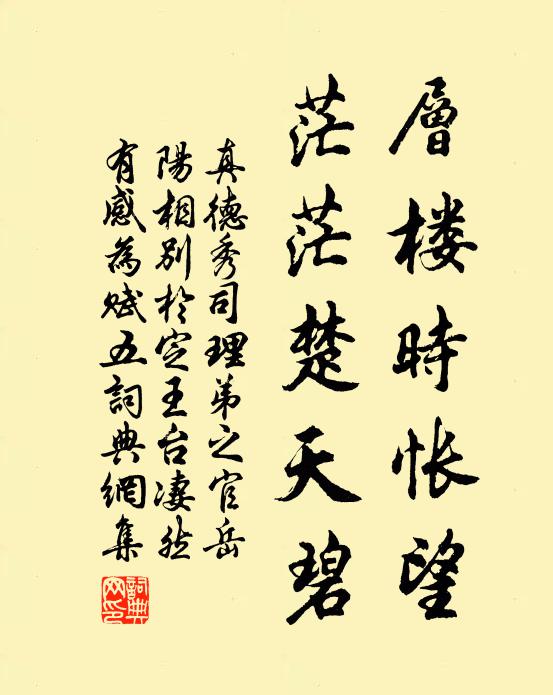 層楼時怅望
茫茫楚天碧
真德秀司理弟之官岳
陽相別於定王台凄然
有感為赋五詞典網集
詞典网印